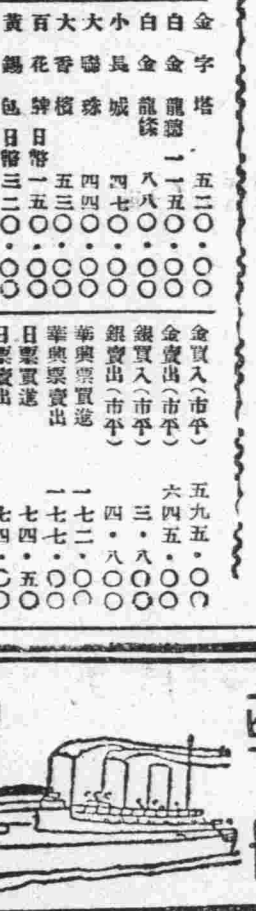 金字塔 五二〇·〇〇
白金龍聽 一一五〇·〇〇
白金龍條 八八〇·〇〇
小長城 四七〇·〇〇
大聯珠 四四〇·〇〇
大香檳 五三〇·〇〇
百花牌 日幣一五〇·〇〇
黃錫包 日幣三二〇·〇〇
金買入(市平) 五九五·〇〇
金賣出(市平) 六四五·〇〇
銀買入(市平) 三·八〇
銀賣出(市平) 四·八〇
華興票買進 一七二·〇〇
華興票賣出 一七七·〇〇
日票買進 七四·五〇
日票賣出